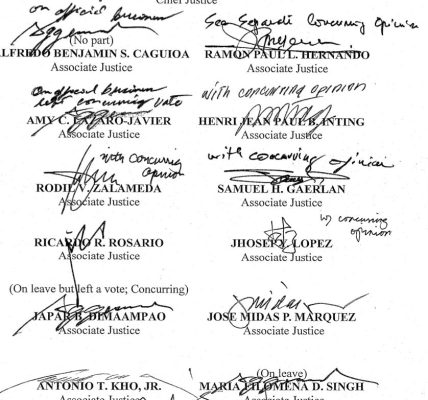 Chief Justice
on official business
See Separate Concurring Opinion
(No part)
ALFREDO BENJAMIN S. CAGUIOA
RAMON PAUL L. HERNANDO
Associate Justice
Associate Justice
on official business
left concurring vote
with concurring opinion
AMY C. LAZARO-JAVIER
HENRI JEAN PAUL B. INTING
Associate Justice
Associate Justice
with concurring
opinion
with concurring opinion
RODIL V. ZALAMEDA
SAMUEL H. GAERLAN
Associate Justice
Associate Justice
w/ concurring
opinion
RICARDO R. ROSARIO
JHOSEP Y. LOPEZ
Associate Justice
Associate Justice
(On leave but left a vote; Concurring)
JAPAR B. DIMAAMPAO
JOSE MIDAS P. MARQUEZ
Associate Justice
Associate Justice
(On leave)
ANTONIO T. KHO, JR.
MARIA FILOMENA D. SINGH
Associate Justice
Associate Justice